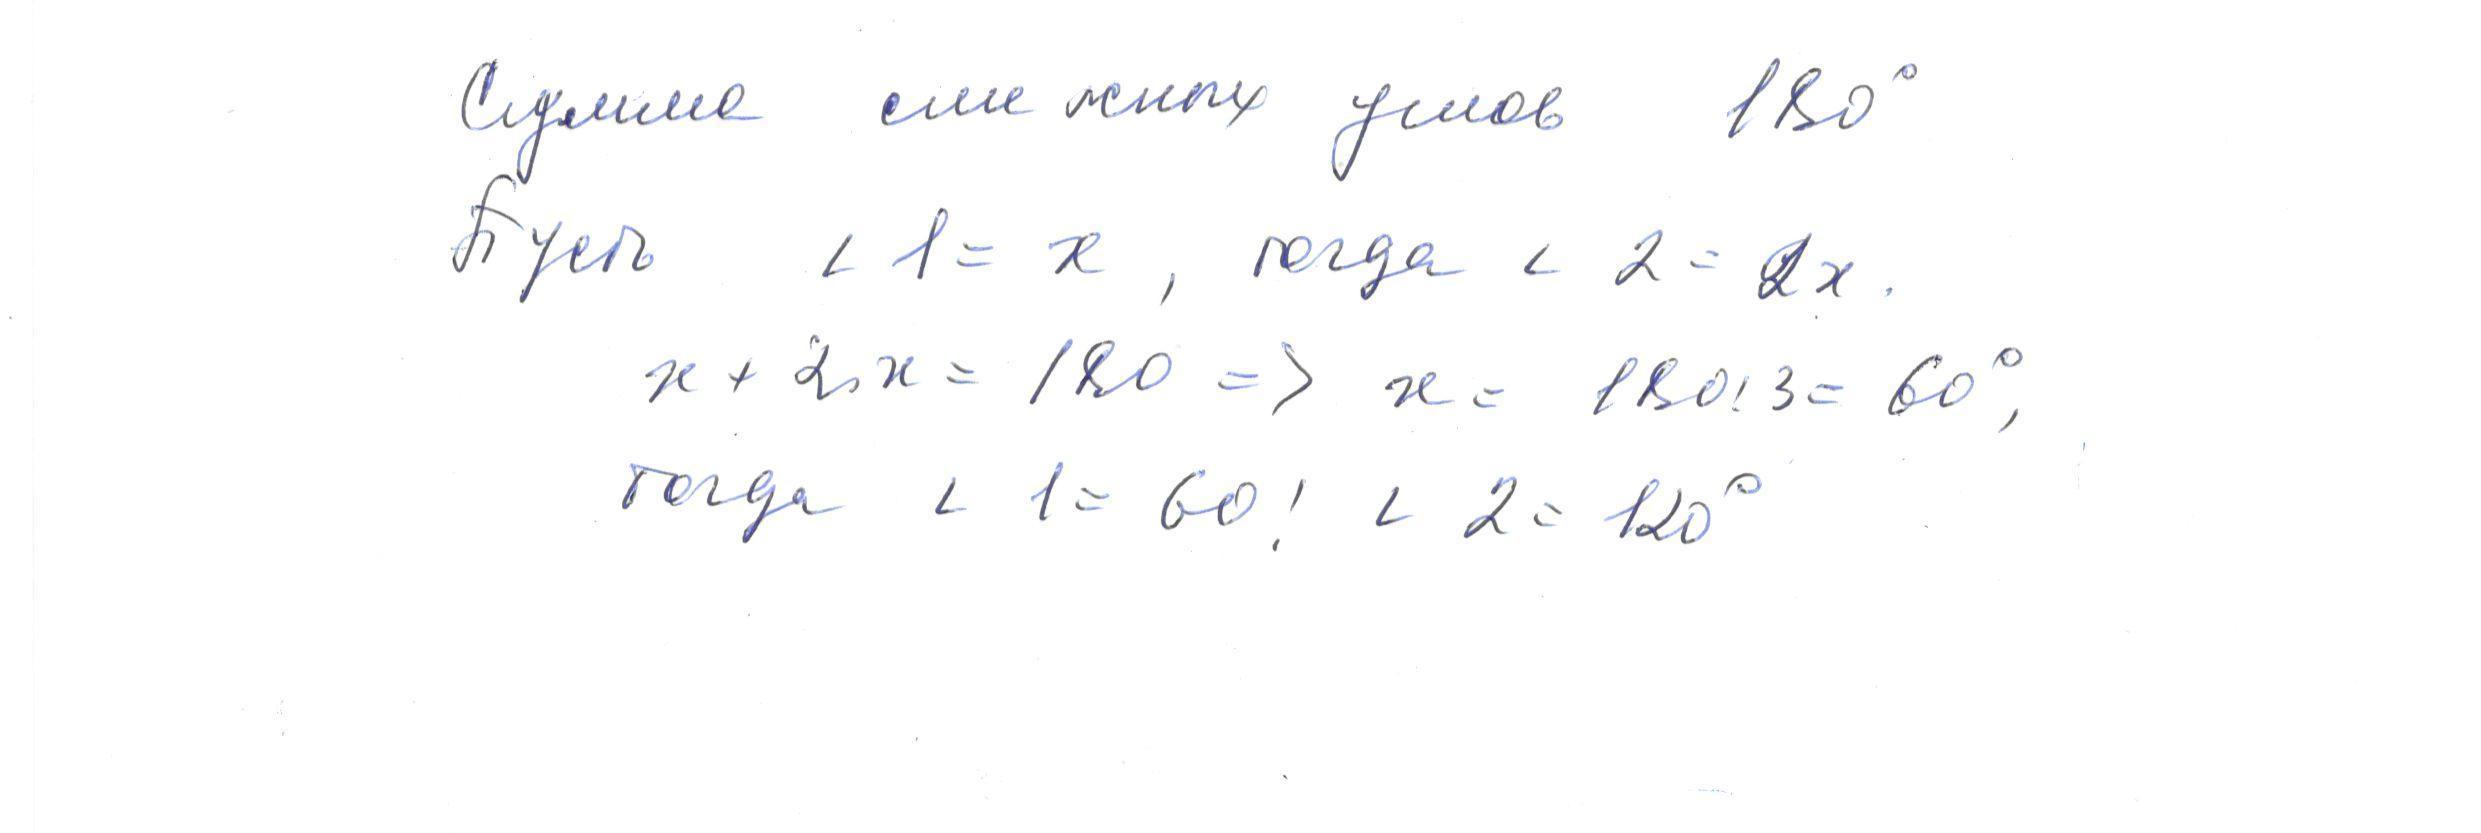 Сумма смежных углов 180°
Пусть ∠ 1 = x, тогда ∠ 2 = 2x.
x + 2x = 180 => x = 180:3 = 60°,
тогда ∠ 1 = 60°, ∠ 2 = 120°